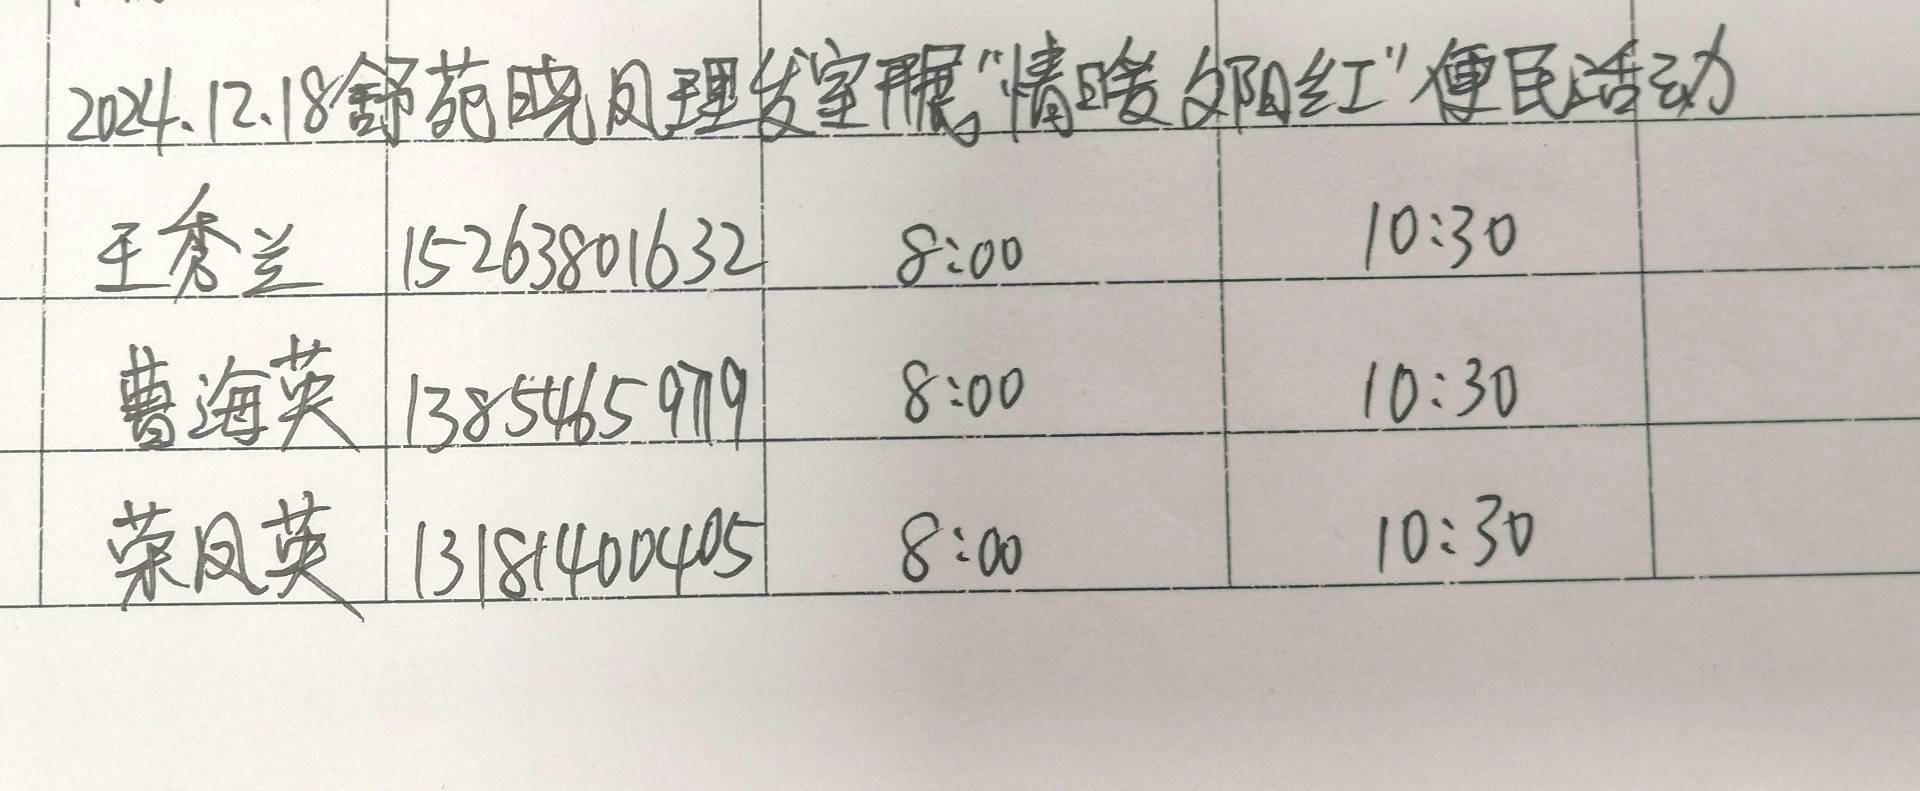 2024.12.18舒苑晓凤理发室开展"情暖夕阳红"便民活动
王秀兰 15263801632 8:00 10:30
曹海英 13854659719 8:00 10:30
荣凤英 13181400405 8:00 10:30